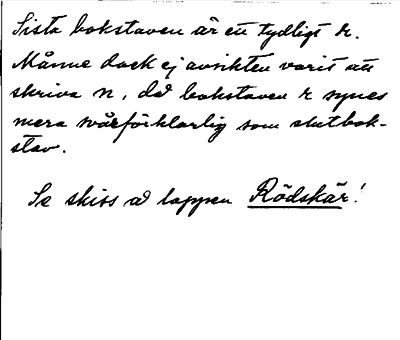 Sista bokstaven är ett tydligt r.
Månne dock ej avsikten varit att
skriva n, då bokstaven r synes
mera svårförklarlig som slutbok-
stav.
Se skiss å lappen Rödskär!